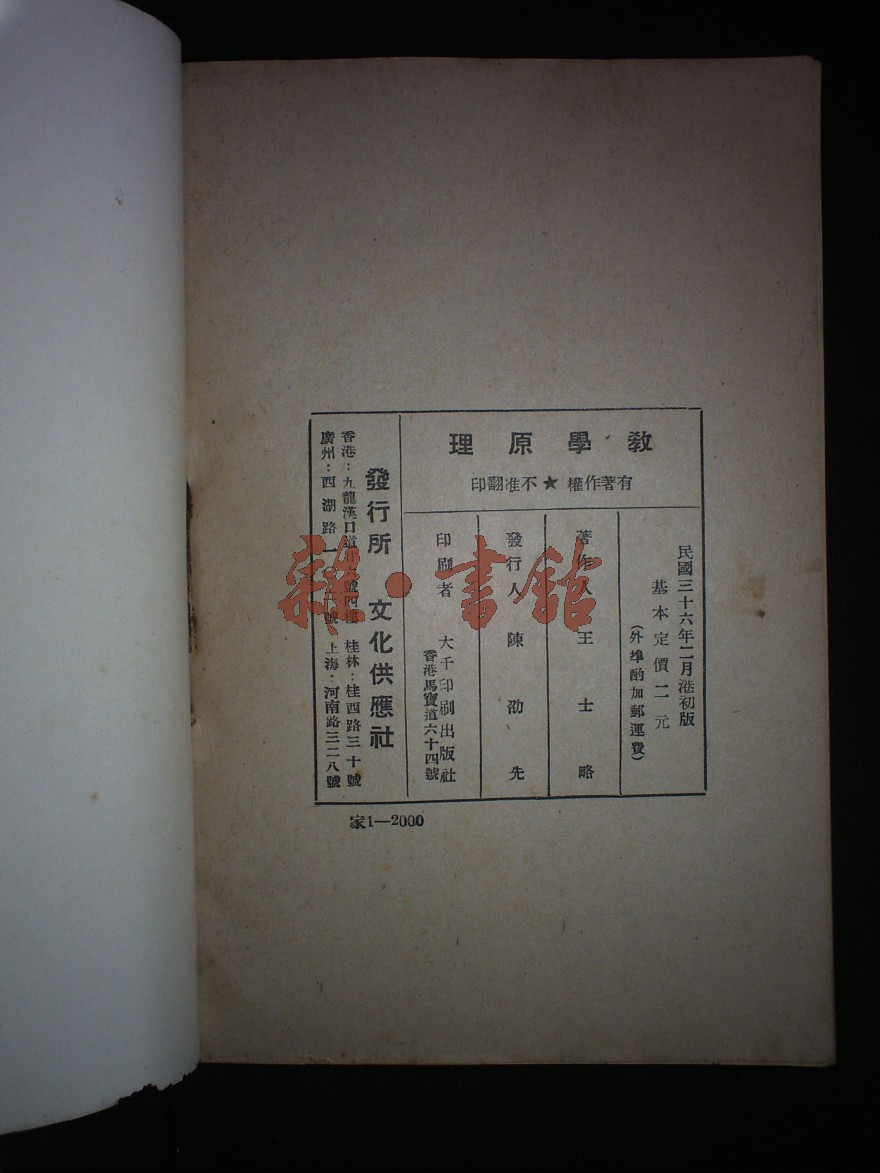 教學原理
有著作權★不准翻印
民國三十六年二月港初版
基本定價二元
（外埠酌加郵運費）
著作人 王士略
發行人 陳劭先
印刷者 大千印刷出版社
香港馬寶道六十四號
發行所 文化供應社
香港：九龍漢口道 號四樓 桂林：桂西路三十號
廣州：西湖路 號 上海：河南路三二八號
家1—2000
雜·書館